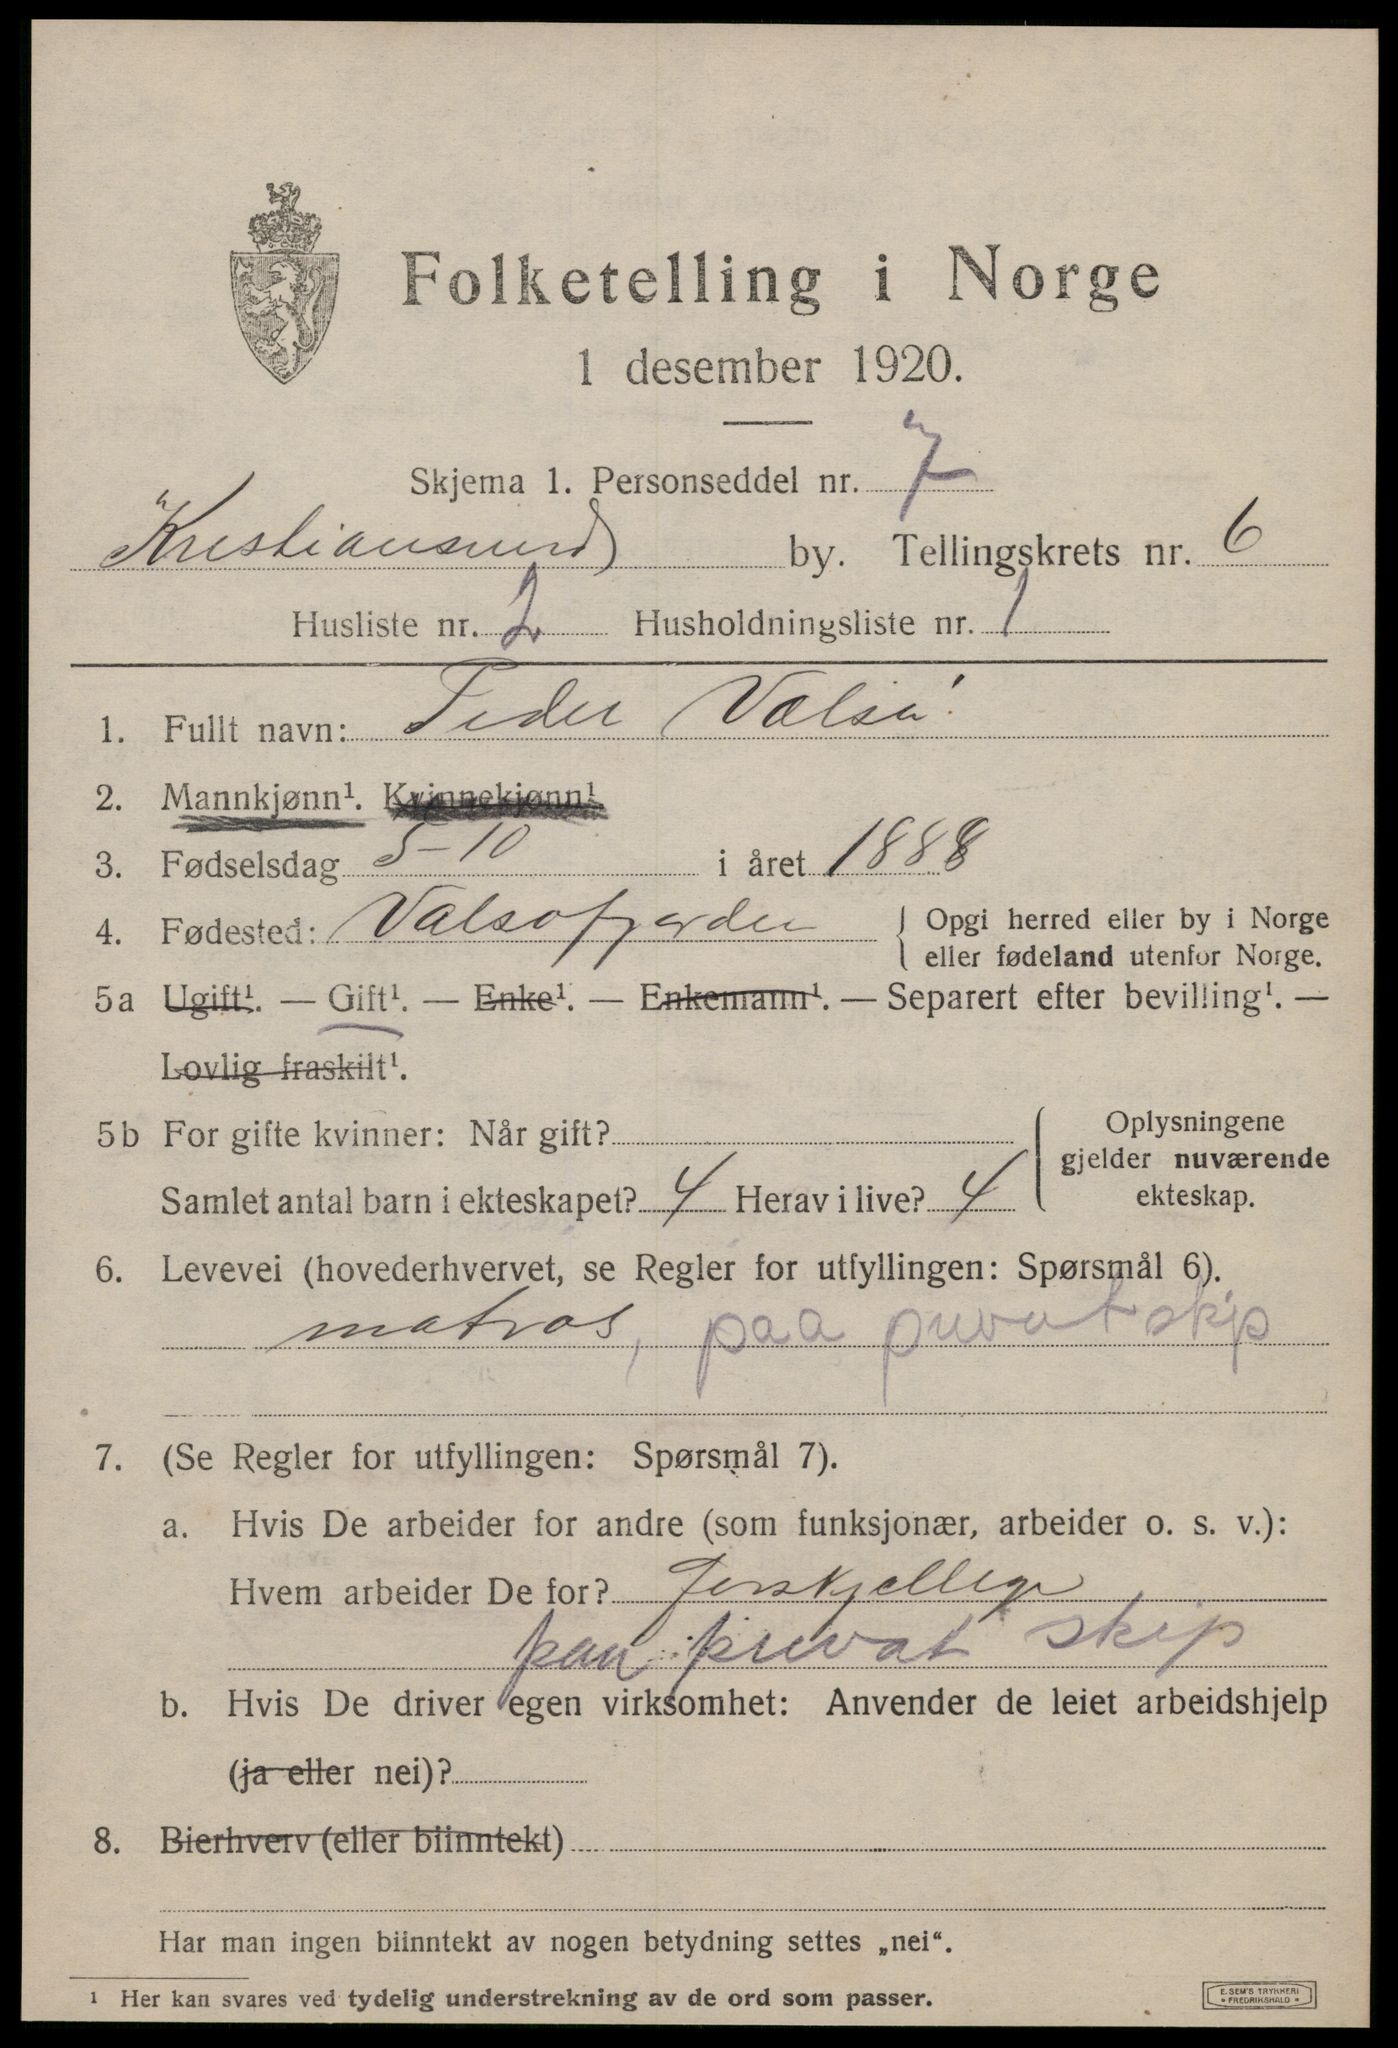 Folketelling i Norge
1 desember 1920.
Skjema 1. Personseddel nr. 7
Kristiansund by. Tellingskrets nr. 6
Husliste nr. 2 Husholdningsliste nr. 1
1. Fullt navn: Peder Valsø
2. Mannkjønn¹. Kvinnekjønn¹.
3. Fødselsdag 5-10 i året 1888
4. Fødested: Valsøfjorden { Opgi herred eller by i Norge
eller fødeland utenfor Norge.
5a Ugift¹. — Gift¹. — Enke¹. — Enkemann¹. — Separert efter bevilling¹. —
Lovlig fraskilt¹.
5b For gifte kvinner: Når gift? { Oplysningene
gjelder nuværende
Samlet antal barn i ekteskapet? 4 Herav i live? 4 ekteskap.
6. Levevei (hovederhvervet, se Regler for utfyllingen: Spørsmål 6).
matros, paa privat skip
7. (Se Regler for utfyllingen: Spørsmål 7).
a. Hvis De arbeider for andre (som funksjonær, arbeider o. s. v.):
Hvem arbeider De for? Forskjellige
paa privat skip
b. Hvis De driver egen virksomhet: Anvender de leiet arbeidshjelp
(ja eller nei)?
8. Bierhverv (eller biinntekt)
Har man ingen biinntekt av nogen betydning settes „nei“.
¹ Her kan svares ved tydelig understrekning av de ord som passer.
E. SEM'S TRYKKERI
• FREDRIKSHALD •